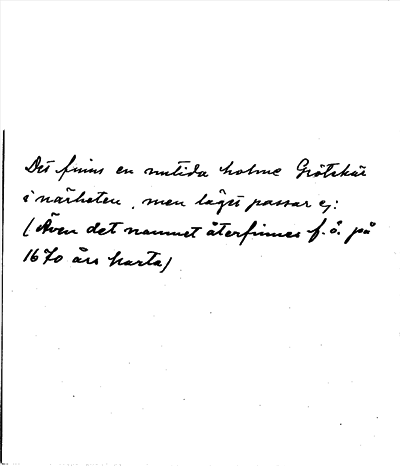 Det finns en nutida holme Grötskär
i närheten, men läget passar ej:
(Även det namnet återfinnes f.ö. på
1670 års karta)